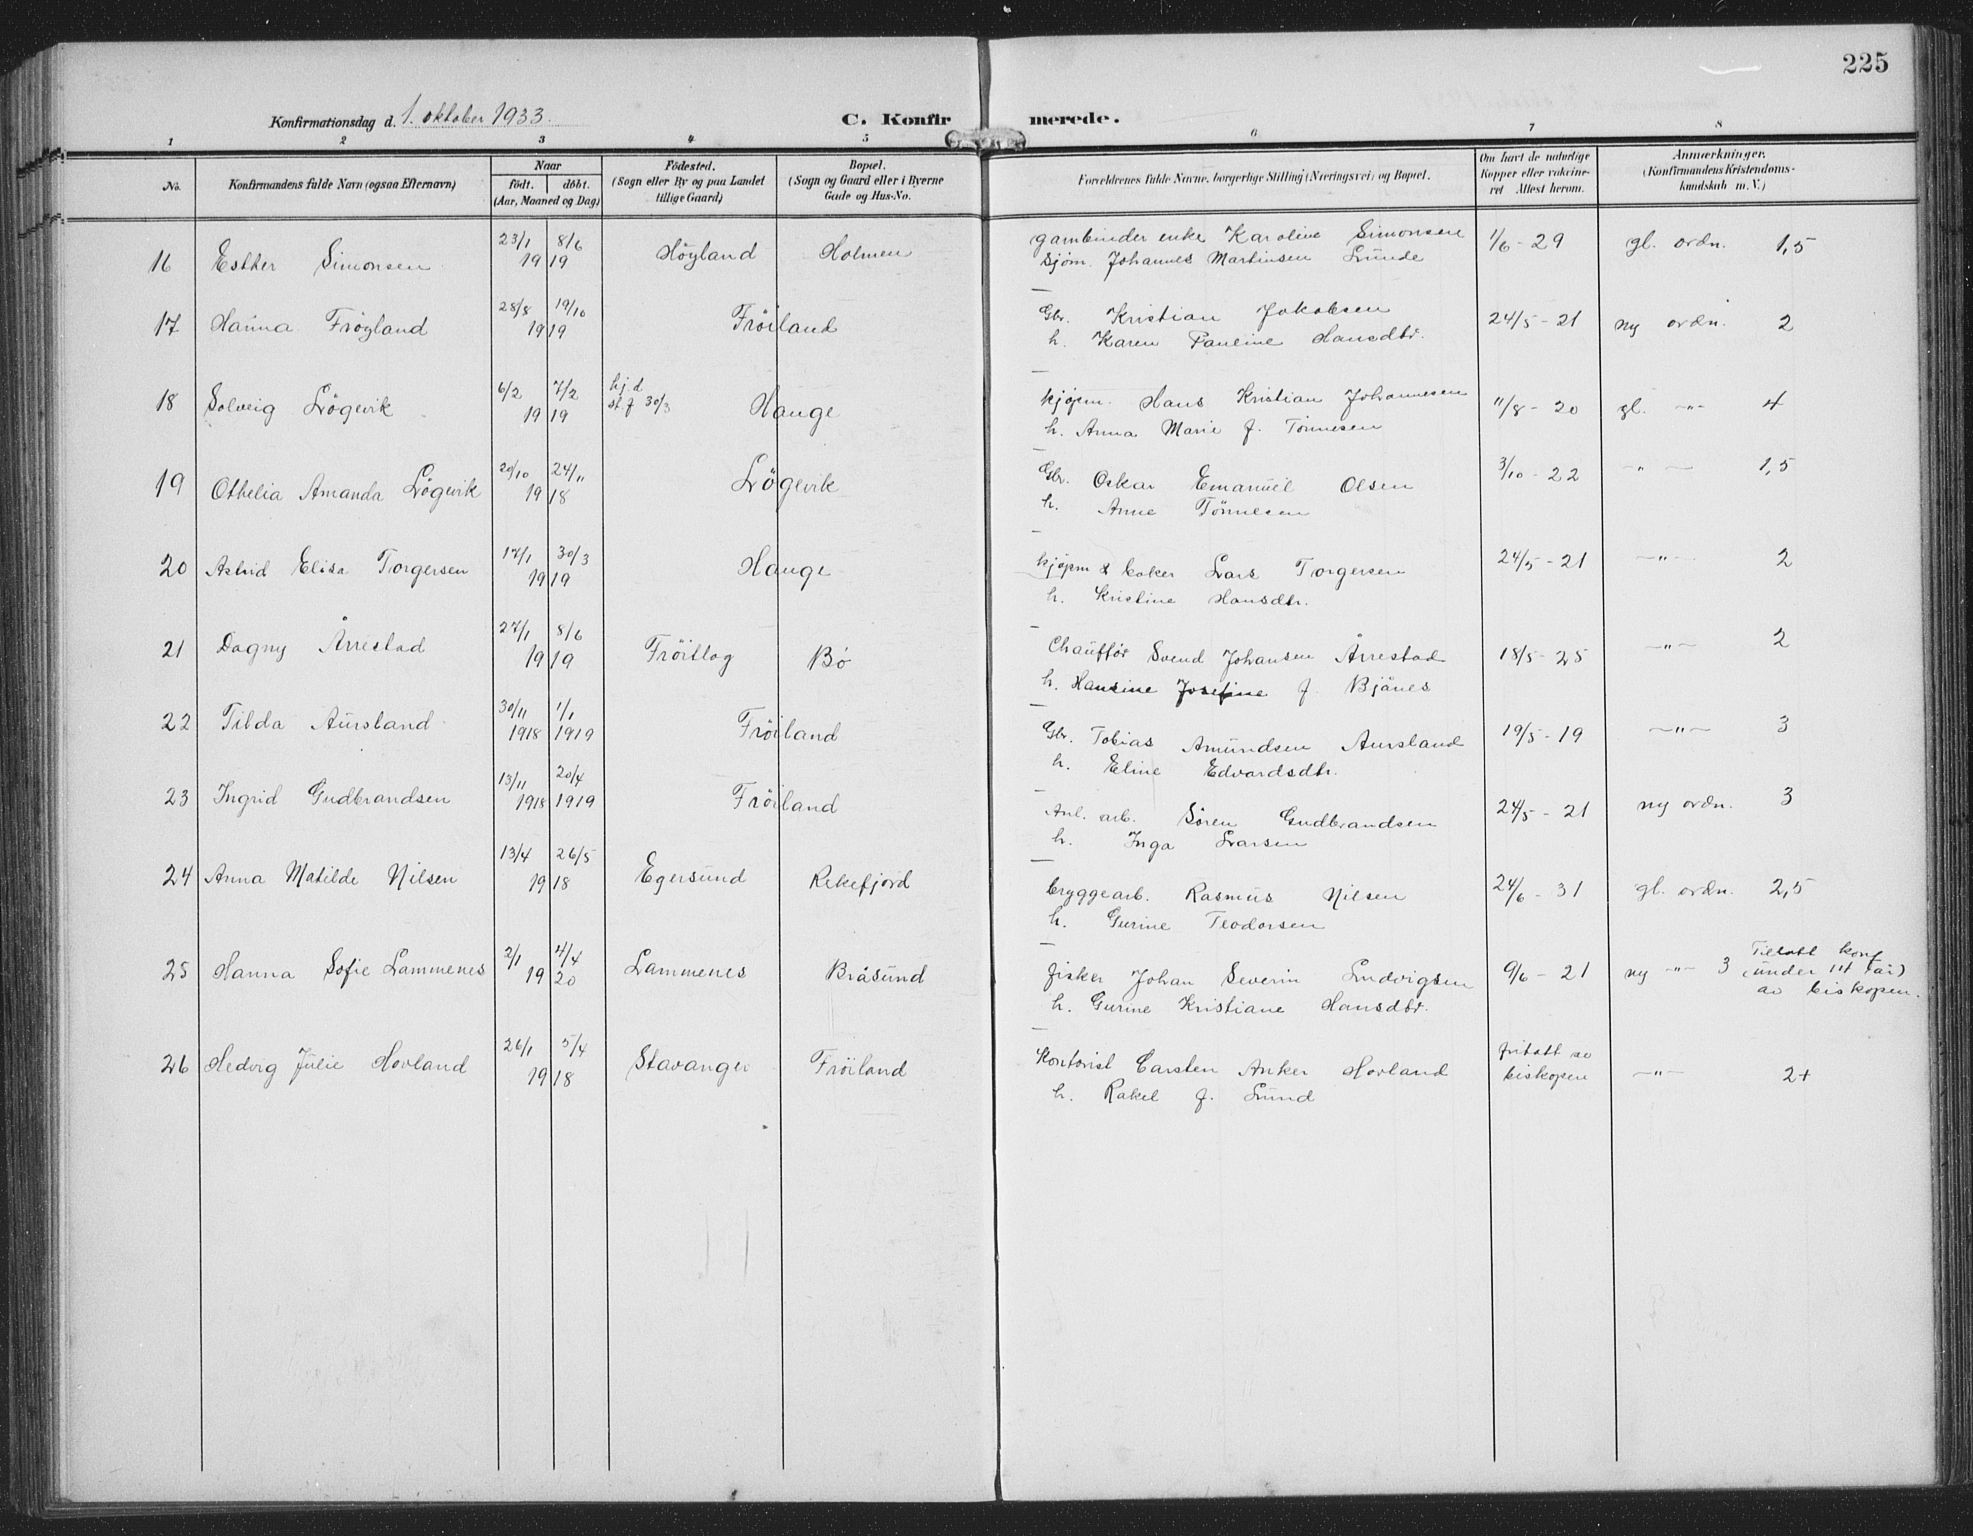 225
Konfirmationsdag d. 1. oktober 1933.
C. Konfirmerede.
1 2 3 4 5 6 7 8
No.
Konfirmandens fulde Navn (ogsaa Efternavn)
Naar
födt. döbt.
(Aar, Maaned og Dag)
Födested.
(Sogn eller By og paa Landet
tillige Gaard)
Bopæl.
(Sogn og Gaard eller i Byerne
Gade og Hus-No.
Forældrenes fulde Navne, borgerlige Stilling (Næringsvei) og Bopæl.
Om havt de naturlige
Kopper eller vakcine-
ret Attest herom.
Anmærkninger.
(Konfirmandens Kristendoms-
kundskab m. V.)
16 Esther Simonsen 23/1 8/6 1919 Höyland Holmen
garnbinder enke Karoline Simonsen 1/6 - 29 gl. ordn. 1,5
Sjøm. Johannes Martinsen Lunde
17 Hanna Fröyland 28/8 19/10 1919 Fröiland
Gbr. Kristian Jakobsen 24/5 - 21 ny ordn. 2
h. Karen Pauline Hansdtr.
18 Solveig Lögevik 6/2 7/2 1919 hj. d. st. f 30/3 Hauge
kjøpm. Hans Kristian Johannesen 11/8 - 20 gl. -"- 4
h. Anna Marie f. Tönnesen
19 Othelia Amanda Lögevik 20/10 24/11 1918 Lögevik
Gbr. Oskar Emanuel Olsen 3/10 - 22 -"- 1,5
h. Anne Tönnesen
20 Astrid Elisa Torgersen 17/1 30/3 1919 Hauge
kjøpm & baker Lars Torgersen 24/5 - 21 -"- 2
h. Kristine Hansdtr.
21 Dagny Årrestad 27/1 8/6 1919 Fröitlog Bø
Chauffør Svend Johansen Årrestad 18/5 - 25 -"- 2
h. Hansine Josefine f. Bjånes
22 Tilda Aursland 30/11 1918 1/1 1919 Fröiland
Gbr. Tobias Amundsen Aursland 19/5 - 19 -"- 3
h. Eline Edvardsdtr.
23 Ingrid Gudbrandsen 13/11 1918 20/4 1919 Fröiland
Anl. arb. Sören Gudbrandsen 24/5 - 21 ny ordn. 3
h. Inga Larsen
24 Anna Matilde Nilsen 13/4 26/5 1918 Egersund Rekefjord
bryggearb. Rasmus Nilsen 24/6 - 31 gl. ordn. 2,5
h. Gurine Teodorsen
25 Hanna Sofie Lammenes 2/1 4/4 1920 Lammenes Bråsund
fisker Johan Severin Ludvigsen 9/6 - 21 ny -"- 3 Tillatt konf
h. Gurine Kristiane Hansdtr. (under 14 år)
av biskopen.
26 Hedvig Julie Hovland 26/1 5/4 1918 Stavanger Fröiland
Kontorist Carsten Anker Hovland fritatt av biskopen -"- 2+
h. Rakel f. Lund